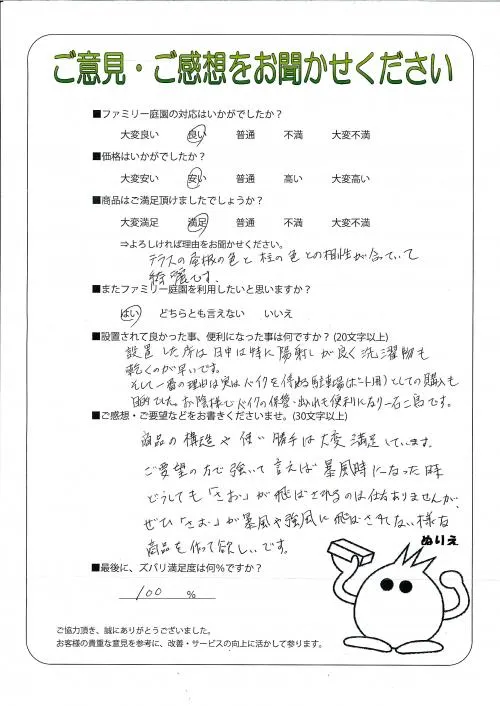 ご意見・ご感想をお聞かせください
■ファミリー庭園の対応はいかがでしたか？
大変良い 良い 普通 不満 大変不満
■価格はいかがでしたか？
大変安い 安い 普通 高い 大変高い
■商品はご満足頂けましたでしょうか？
大変満足 満足 普通 不満 大変不満
⇒よろしければ理由をお聞かせください。
テラスの屋根の色と柱の色との相性が合っていて
綺麗です。
■またファミリー庭園を利用したいと思いますか？
はい どちらとも言えない いいえ
■設置されて良かった事、便利になった事は何ですか？(20文字以上)
設置した所は日中は特に陽射しが良く洗濯物も
乾くのが早いです。
そして一番の理由は実はバイクを停める駐車場としての購入も
目的でした。お陰様でバイクの保管・出し入れも便利になり一石二鳥です。
■ご感想・ご要望などをお書きくださいませ。(30文字以上)
商品の構造や使い勝手は大変満足しています。
ご要望の方で強いて言えば暴風時になった時
どうしても「さお」が飛ばされるのは仕方ありませんが、
ぜひ「さお」が暴風や強風に飛ばされない様な
商品を作って欲しいです。
■最後に、ズバリ満足度は何％ですか？
100 ％
ぬりえ
ご協力頂き、誠にありがとうございました。
お客様の貴重な意見を参考に、改善・サービスの向上に活かして参ります。